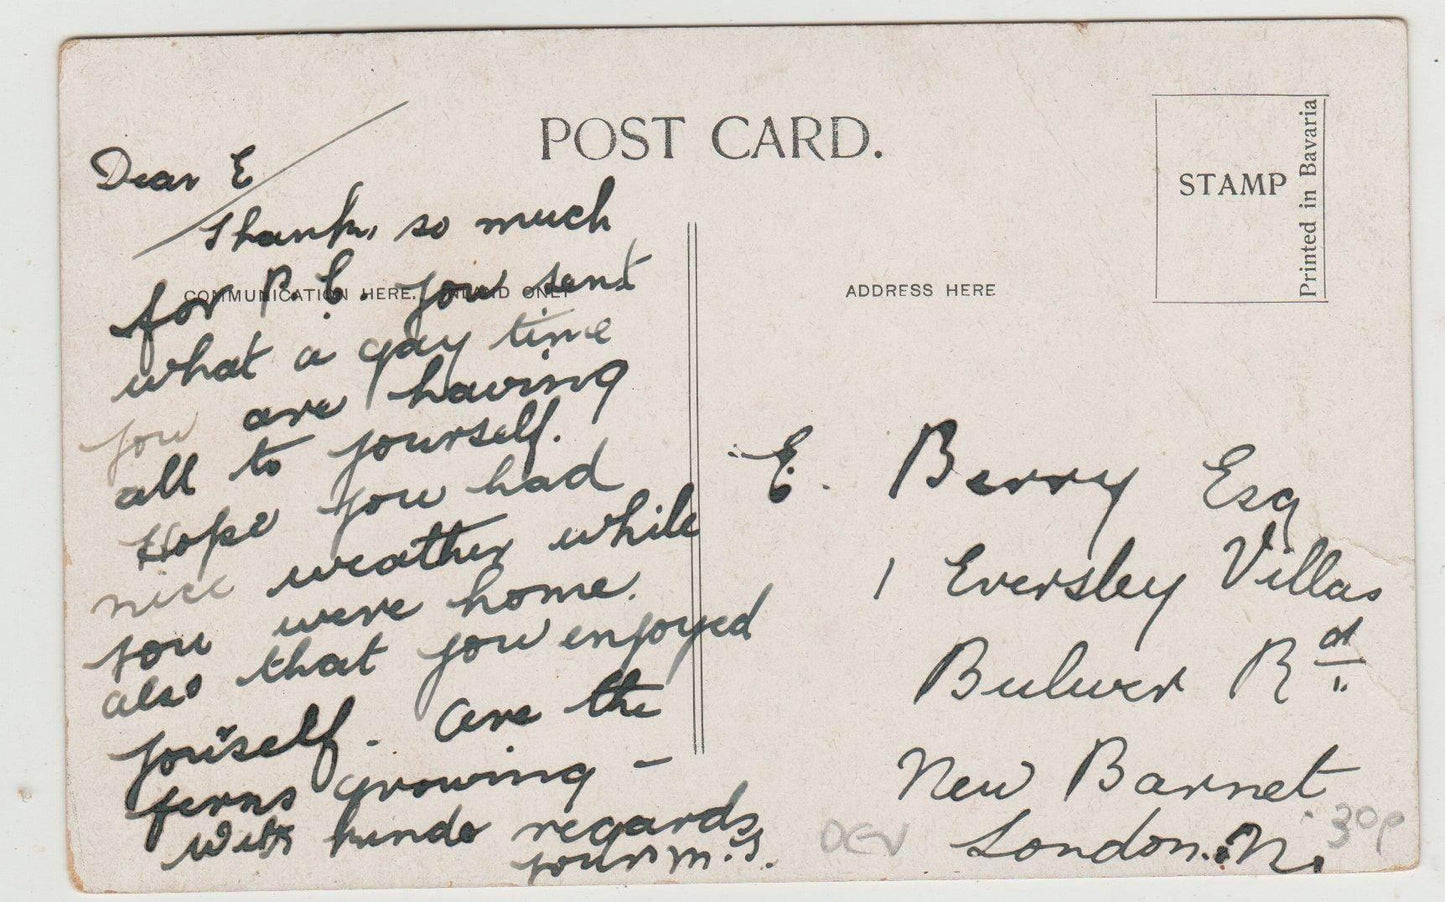 POST CARD.
STAMP
Printed in Bavaria
COMMUNICATION HERE. INLAND ONLY
ADDRESS HERE
Dear E
Thank, so much
for P. C. you sent
what a gay time
you are having
all to yourself.
Hope you had
nice weather while
you were home.
also that you enjoyed
yourself. Are the
ferns growing –
With kinds regards
yours M. S.
E. Berry Esq
1 Eversley Villas
Bulwer Rd
New Barnet
London. N.
DEV
30p